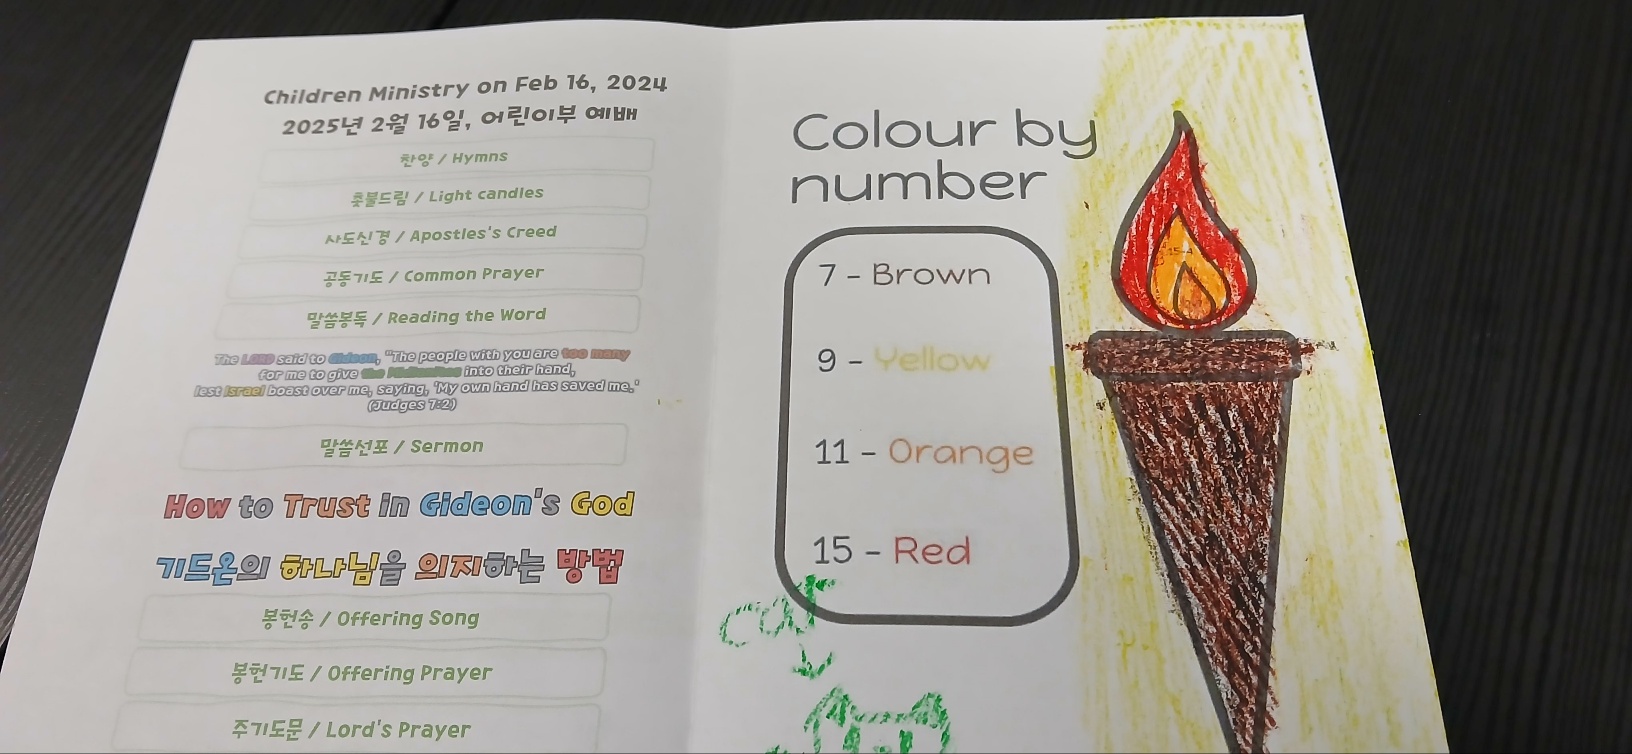 Children Ministry on Feb 16, 2024
2025년 2월 16일, 어린이부 예배
찬양 / Hymns
촛불드림 / Light candles
사도신경 / Apostles's Creed
공동기도 / Common Prayer
말씀봉독 / Reading the Word
The LORD said to Gideon, "The people with you are too many
for me to give the Midianites into their hand,
lest Israel boast over me, saying, 'My own hand has saved me.'
(Judges 7:2)
말씀선포 / Sermon
How to Trust in Gideon's God
기드온의 하나님을 의지하는 방법
봉헌송 / Offering Song
봉헌기도 / Offering Prayer
주기도문 / Lord's Prayer
Colour by
number
7 - Brown
9 - Yellow
11 - Orange
15 - Red
cat